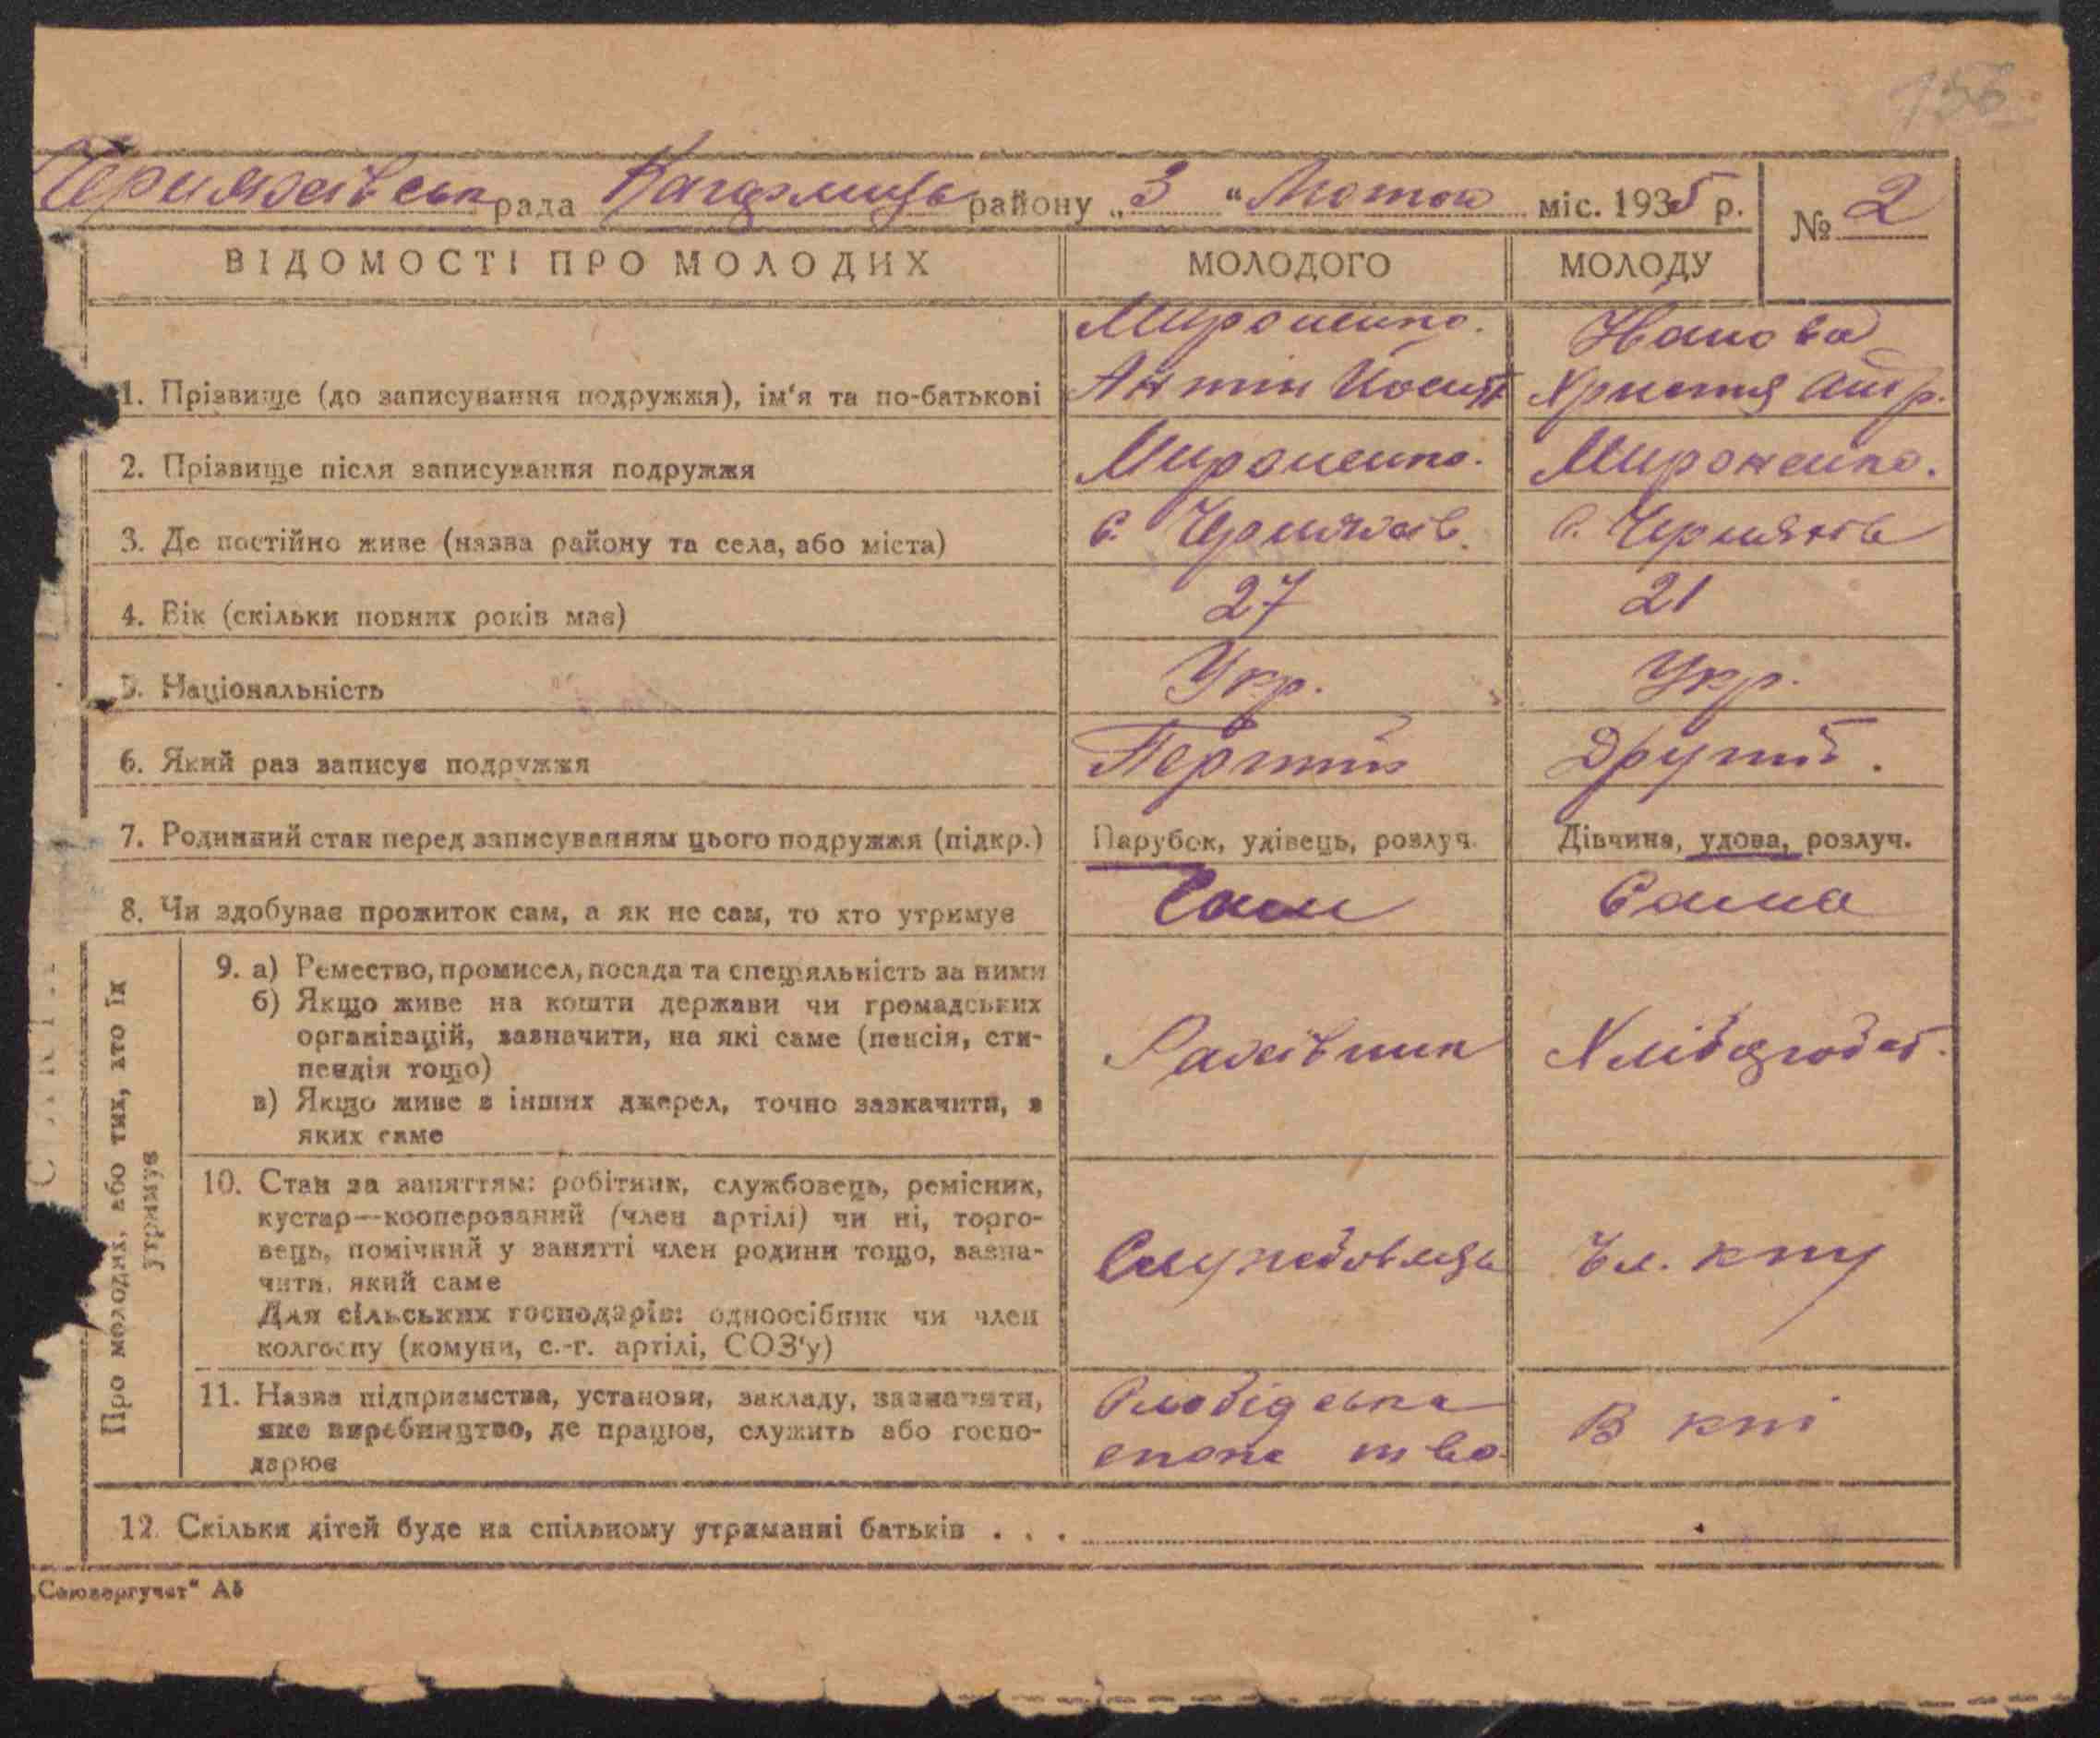 156
Черняхівськ рада Кагарлицьк району „3“ Лютого міс. 1935 р. № 2
ВІДОМОСТІ ПРО МОЛОДИХ МОЛОДОГО МОЛОДУ
Мироненко.
1. Прізвище (до записування подружжя), ім'я та по-батькові Антін Йосип Христя
2. Прізвище після записування подружжя Мироненко. Мироненко.
3. Де постійно живе (назва району та села, або міста) с. Черняхів. с. Черняхів
4. Вік (скільки повних років має) 27 21
5. Національність Укр. Укр.
6. Який раз записує подружжя Перший Другий.
7. Родинний стан перед записуванням цього подружжя (підкр.) Парубок, удівець, розлуч. Дівчина, удова, розлуч.
8. Чи здобуває прожиток сам, а як не сам, то хто утримує Сам Сама
Про молодих, або тих, хто їх
утримує
9. а) Ремество, промисел, посада та спеціяльність за ними
б) Якщо живе на кошти держави чи громадських
організацій, зазначити, на які саме (пенсія, сти-
пендія тощо)
в) Якщо живе з інших джерел, точно зазначити, з
яких саме
Рахівник Хлібороб.
10. Стан за заняттям: робітник, службовець, ремісник,
кустар—кооперований (член артілі) чи ні, торго-
вець, помічний у занятті член родини тощо, зазна-
чити, який саме
Для сільських господарів: одноосібник чи член
колгоспу (комуни, с.-г. артілі, СОЗ'у)
Службовець Чл. кгу
11. Назва підприємства, установи, закладу, зазначити,
яке виробництво, де працює, служить або госпо-
дарює
Слобідська В кгі
спож т-во
12. Скільки дітей буде на спільному утриманні батьків . . .
„Союзоргучет“ А5